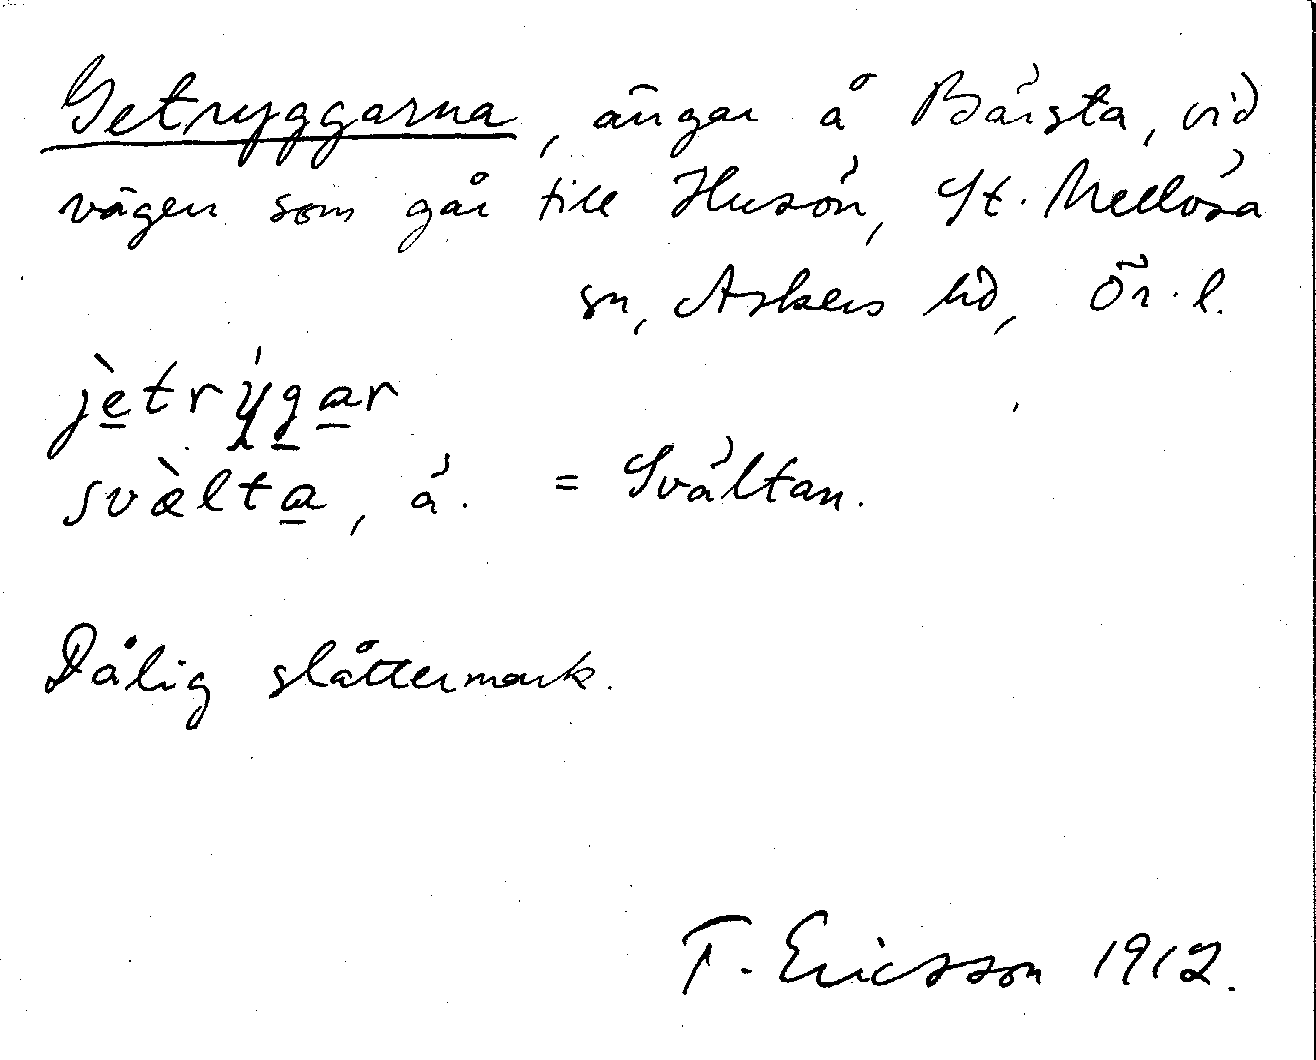 Getryggarna, ängar å Bärsta, vid
vägen som går till Husön, St. Mellösa
sn, Askers hd, Ör. l.
jètrýgar
svælta, ä. = Svältan.
Dålig slåttermark.
T. Ericsson 1912.